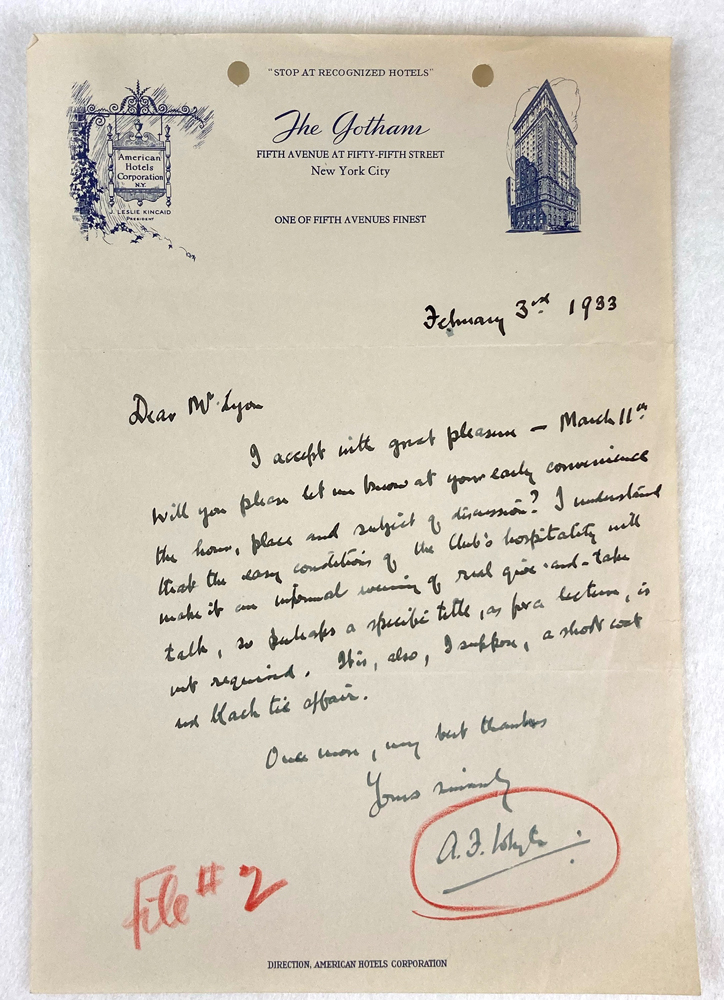 "STOP AT RECOGNIZED HOTELS"
American
Hotels
Corporation
N.Y.
J. LESLIE KINCAID
PRESIDENT
The Gotham
FIFTH AVENUE AT FIFTY-FIFTH STREET
New York City
ONE OF FIFTH AVENUES FINEST
February 3rd 1933
Dear Mr. Lyon
I accept with great pleasure — March 11th
Will you please let me know at your early convenience
the hour, place and subject of discussion? I understand
that the easy conditions of the Club's hospitality will
make it an informal evening of real give-and-take
talk, so perhaps a specific title, as for a lecture, is
not required. It is, also, I suppose, a short coat
and black tie affair.
Once more, my best thanks
Yours sincerely
A. F. Whyte.
File #2
DIRECTION, AMERICAN HOTELS CORPORATION